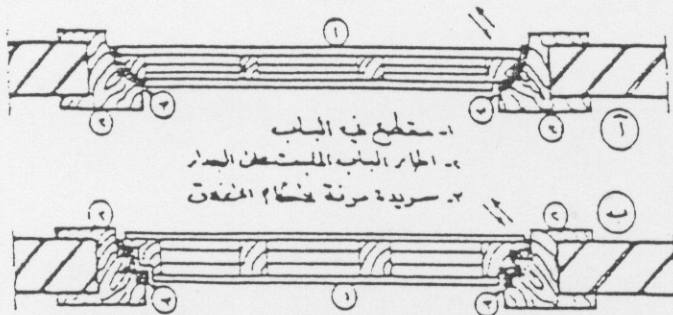 ١
٢ ٣ ٣ ٢ آ
١- مقطع في الباب
٢- اطار الباب المثبت على الجدار
٣- سريدة مرنة لاحكام الاغلاق
٢ ٢ ب
٣ ١ ٣